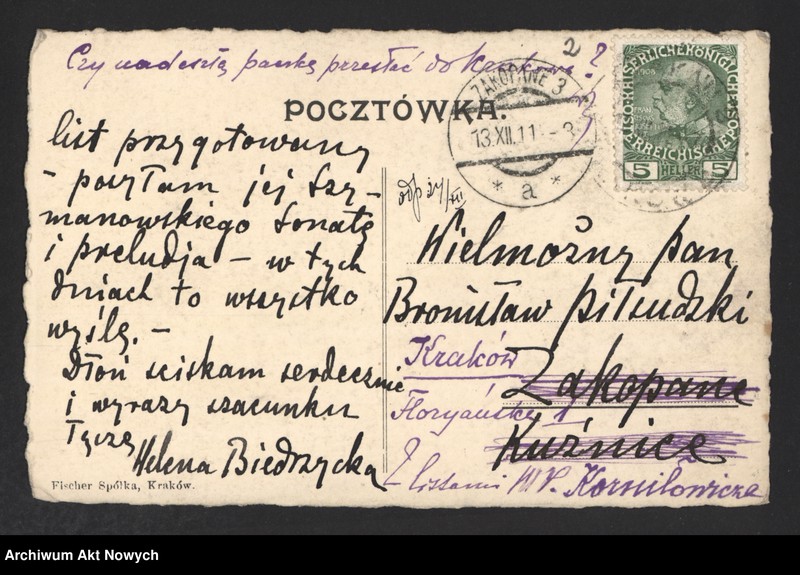 Czy nadeszłą paczkę przesłać do Krakowa?
2
POCZTÓWKA.
ZAKOPANE 3
13.XII.11 - 8
* a *
KAIS. KÖNIGLICHE ÖSTERREICHISCHE POST
5 HELLER 5
list przygotowany
- posyłam jej Szy-
manowskiego Sonatę
i preludja - w tych
dniach to wszystko
wyślę. -
Dłoń sciskam serdecznie
i wyrazy szacunku
łączę
Helena Biedrzycka
odp 27/XII
Wielmożny pan
Bronisław Piłsudski
Kraków
Zakopane
Floryańska 1
Kuźnice
Z listami WP. Korniłowicza
Fischer Spółka, Kraków.
Archiwum Akt Nowych